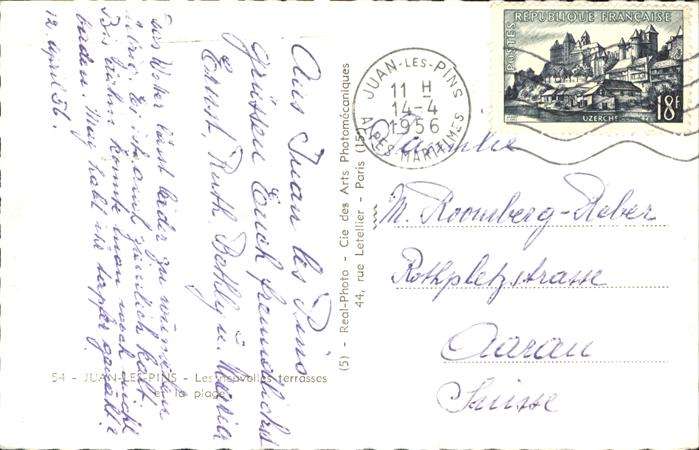 POSTES
RÉPUBLIQUE FRANÇAISE
UZERCHE
18F
JUAN-LES-PINS
11 H
14-4
1956
ALPES-MARITIMES
Aus Juan les Pins
grüssen Euch freundlichst
Ernst, Ruth, Bethly u. Maria
Das Wetter lässt leider zu wünschen
übrig. Es ist ziemlich kalt.
Bis dahin konnte man noch nicht
baden. Mag
12. April 56.
Familie
M. Roomberg-Heber
Rothpletzstrasse
Aarau
Suisse
54 - JUAN-LES-PINS - Les nouvelles terrasses
et la plage
(5) - Real-Photo - Cie des Arts Photomécaniques
44, rue Letellier - Paris (15)